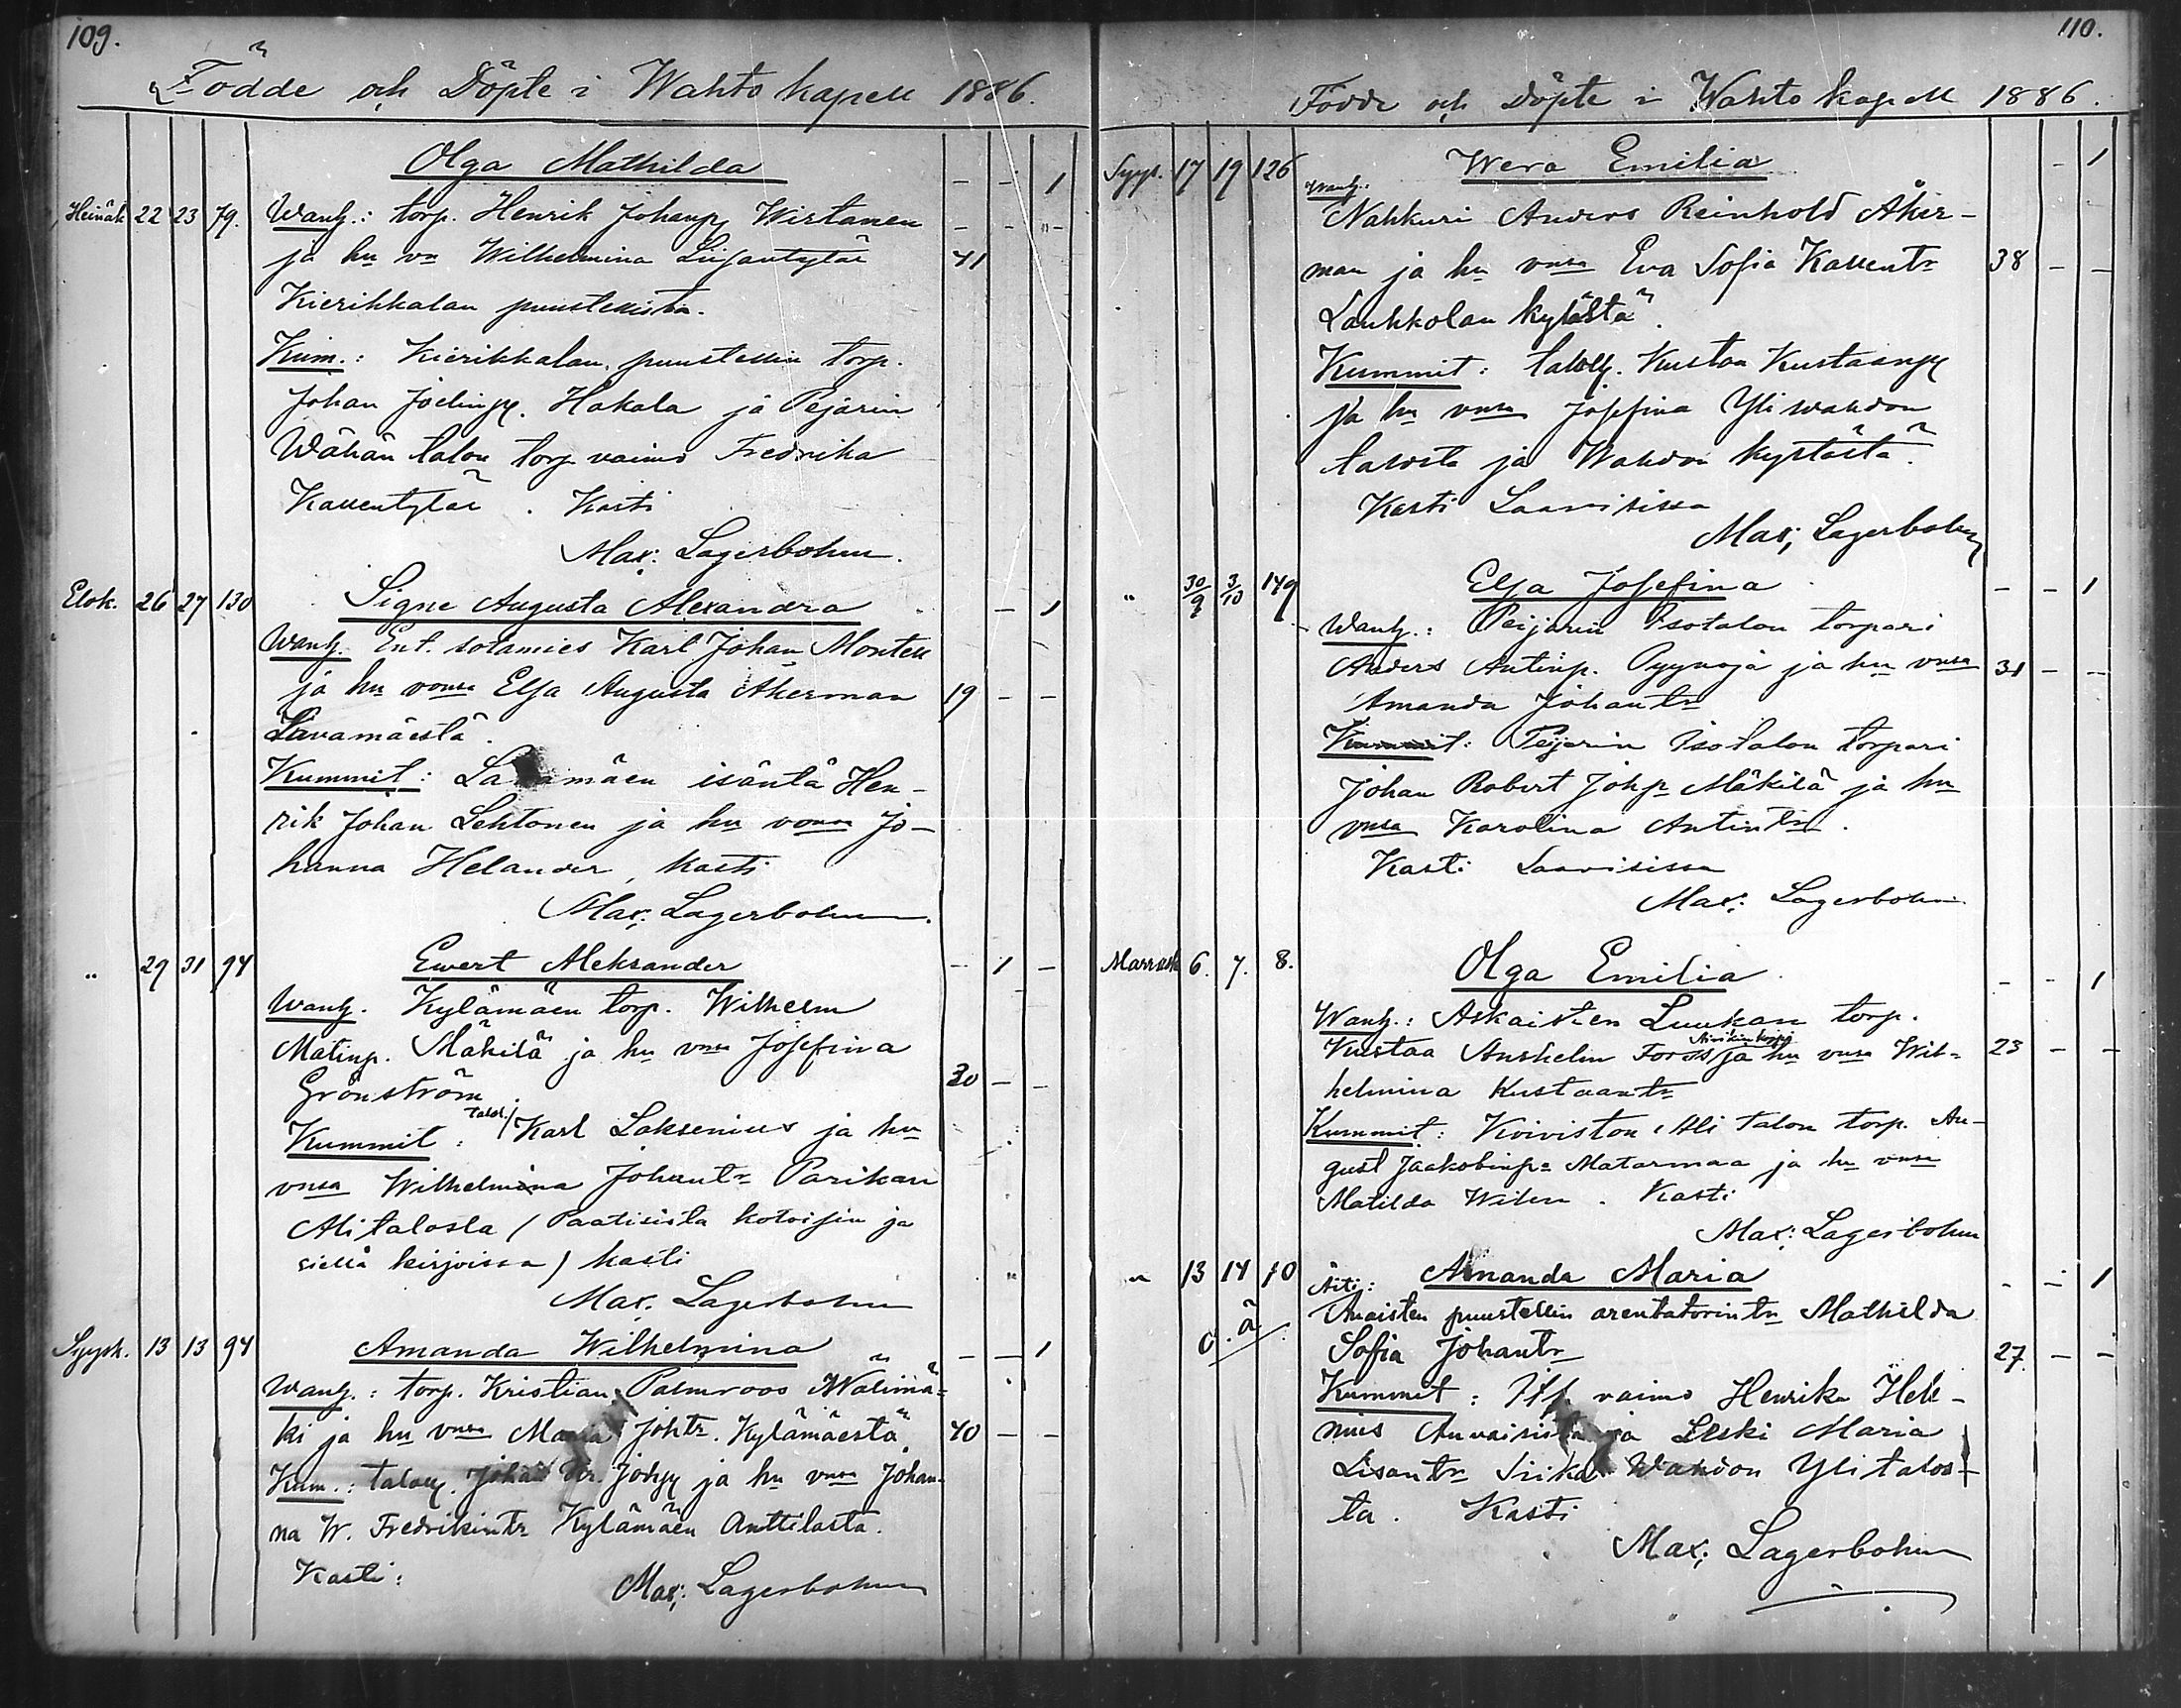 109.
Födde och Döpte i Wahto kapell 1886.
Olga Mathilda - - 1
Heinäk 22 23 79. Wanh.: torp. Henrik Johanp Wirtanen - - -
ja hn vo Wilhelmina Liisantytär 41
Kierikkalan puustellista.
Kum.: Kierikkalan puustellin torp.
Johan Joelinp. Hakala ja Pejarin
Wähän talon torp. vaimo Fredrika
Kallentytär. Kasti
Max: Lagerbohm.
Elok. 26 27 130 Signe Augusta Alexandra - 1
Wanh. Ent. sotamies Karl Johan Montell
ja hn vonsa Elsa Augusta Åkerman 19 - -
Lavamäestä.
Kummit: La mäen isäntä Hen-
rik Johan Lehtonen ja hn vonsa Jo-
hanna Helander, kasti
Max: Lagerbohm.
" 29 31 94 Ewert Aleksander - 1 -
Wanh. Kylämäen torp. Wilhelm
Matinp. Mäkilä ja hn vnsa Josefina
Grönström 30 - -
Kummit: Talol. Karl Laksenius ja hn
vnsa Wilhelmina Johant: Parikan
Alitalosta (Paatisista kotoisin ja
siellä kirjoissa) kasti
Max. Lagerbohm
Syysk. 13 13 94 Amanda Wilhelmina - - 1
Wanh.: torp. Kristian Palmroos Wälimä-
ki ja hn vnsa Maria Johtr. Kylämäestä 40 - -
Kum.: talon. Johan ja hn vnsa Johan-
na W. Fredrikintr Kylämäen Anttilasta.
Kasti: Max: Lagerbohm
110.
Födde och Döpte i Wahto kapell 1886.
Syys. 17 19 126 Wera Emilia - 1
Wanh:
Nahkuri Anders Reinhold Åker-
man ja hn vnsa Eva Sofia Kallentr 38 - -
Laukkolan kylästä.
Kummit: taloll. Kustaa Kustaanp
ja hn vnsa Josefina Yli wahdon
talosta ja Wahdon kylästä.
Kasti Laavisissa
Max: Lagerbohm
" 30/9 3/10 149 Elsa Josefina - - 1
Wanh.: Peijarin Isotalon torpari
Anders Antinp. Pyynoja ja hn vnsa 31 - -
Amanda Johantr
Kummit: Peijarin Isotalon torpari
Johan Robert Johp Mäkilä ja hn
vnsa Karolina Antintr.
Kasti Laavisissa
Max: Lagerbohm
Marrask 6. 7. 8. Olga Emilia - - 1
Wanh.: Askaisten Luukan torp.
Kustaa Anshelm Forss ja hn vnsa Wil- 23 - -
helmina Kustaantr
Kummit: Koiviston Ali talon torp. Au-
gust Jaakobinp: Matarmaa ja hn vnsa
Matilda Wilen. Kasti
Max: Lagerbohm
" 13 14 10 Äiti: Amanda Maria - - 1
o. ä. puustellin arentatorintr Mathilda
Sofia Johantr 27. - -
Kummit: vaimo Henrika Hell-
nius ja Leski Maria
Lisantr Wahdon Ylitalos-
ta. Kasti
Max: Lagerbohm